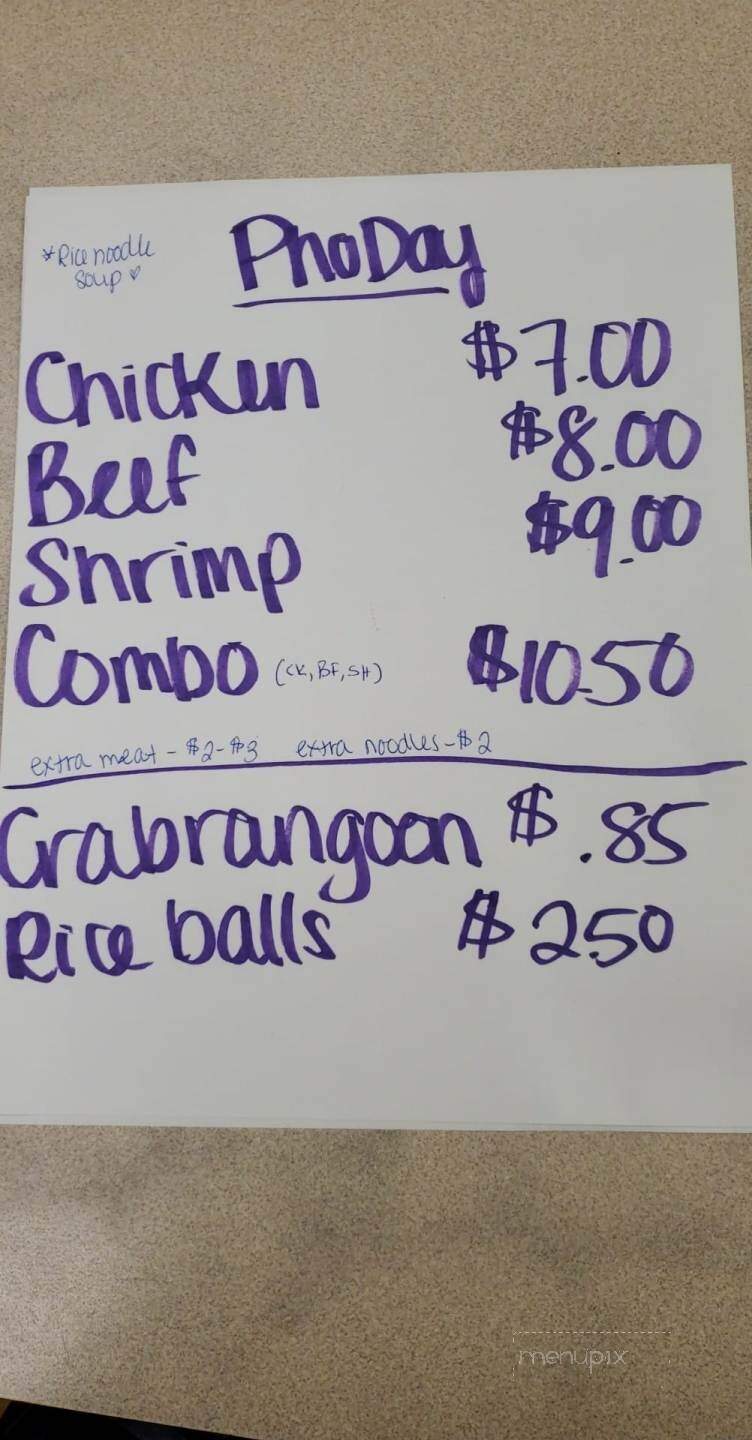 *Rice noodle
soup ♡
PhoDay
Chicken $7.00
Beef $8.00
Shrimp $9.00
Combo (CK, BF, SH) $10.50
extra meat - $2-$3 extra noodles - $2
Crabrangoon $.85
Rice balls $2.50
menupix